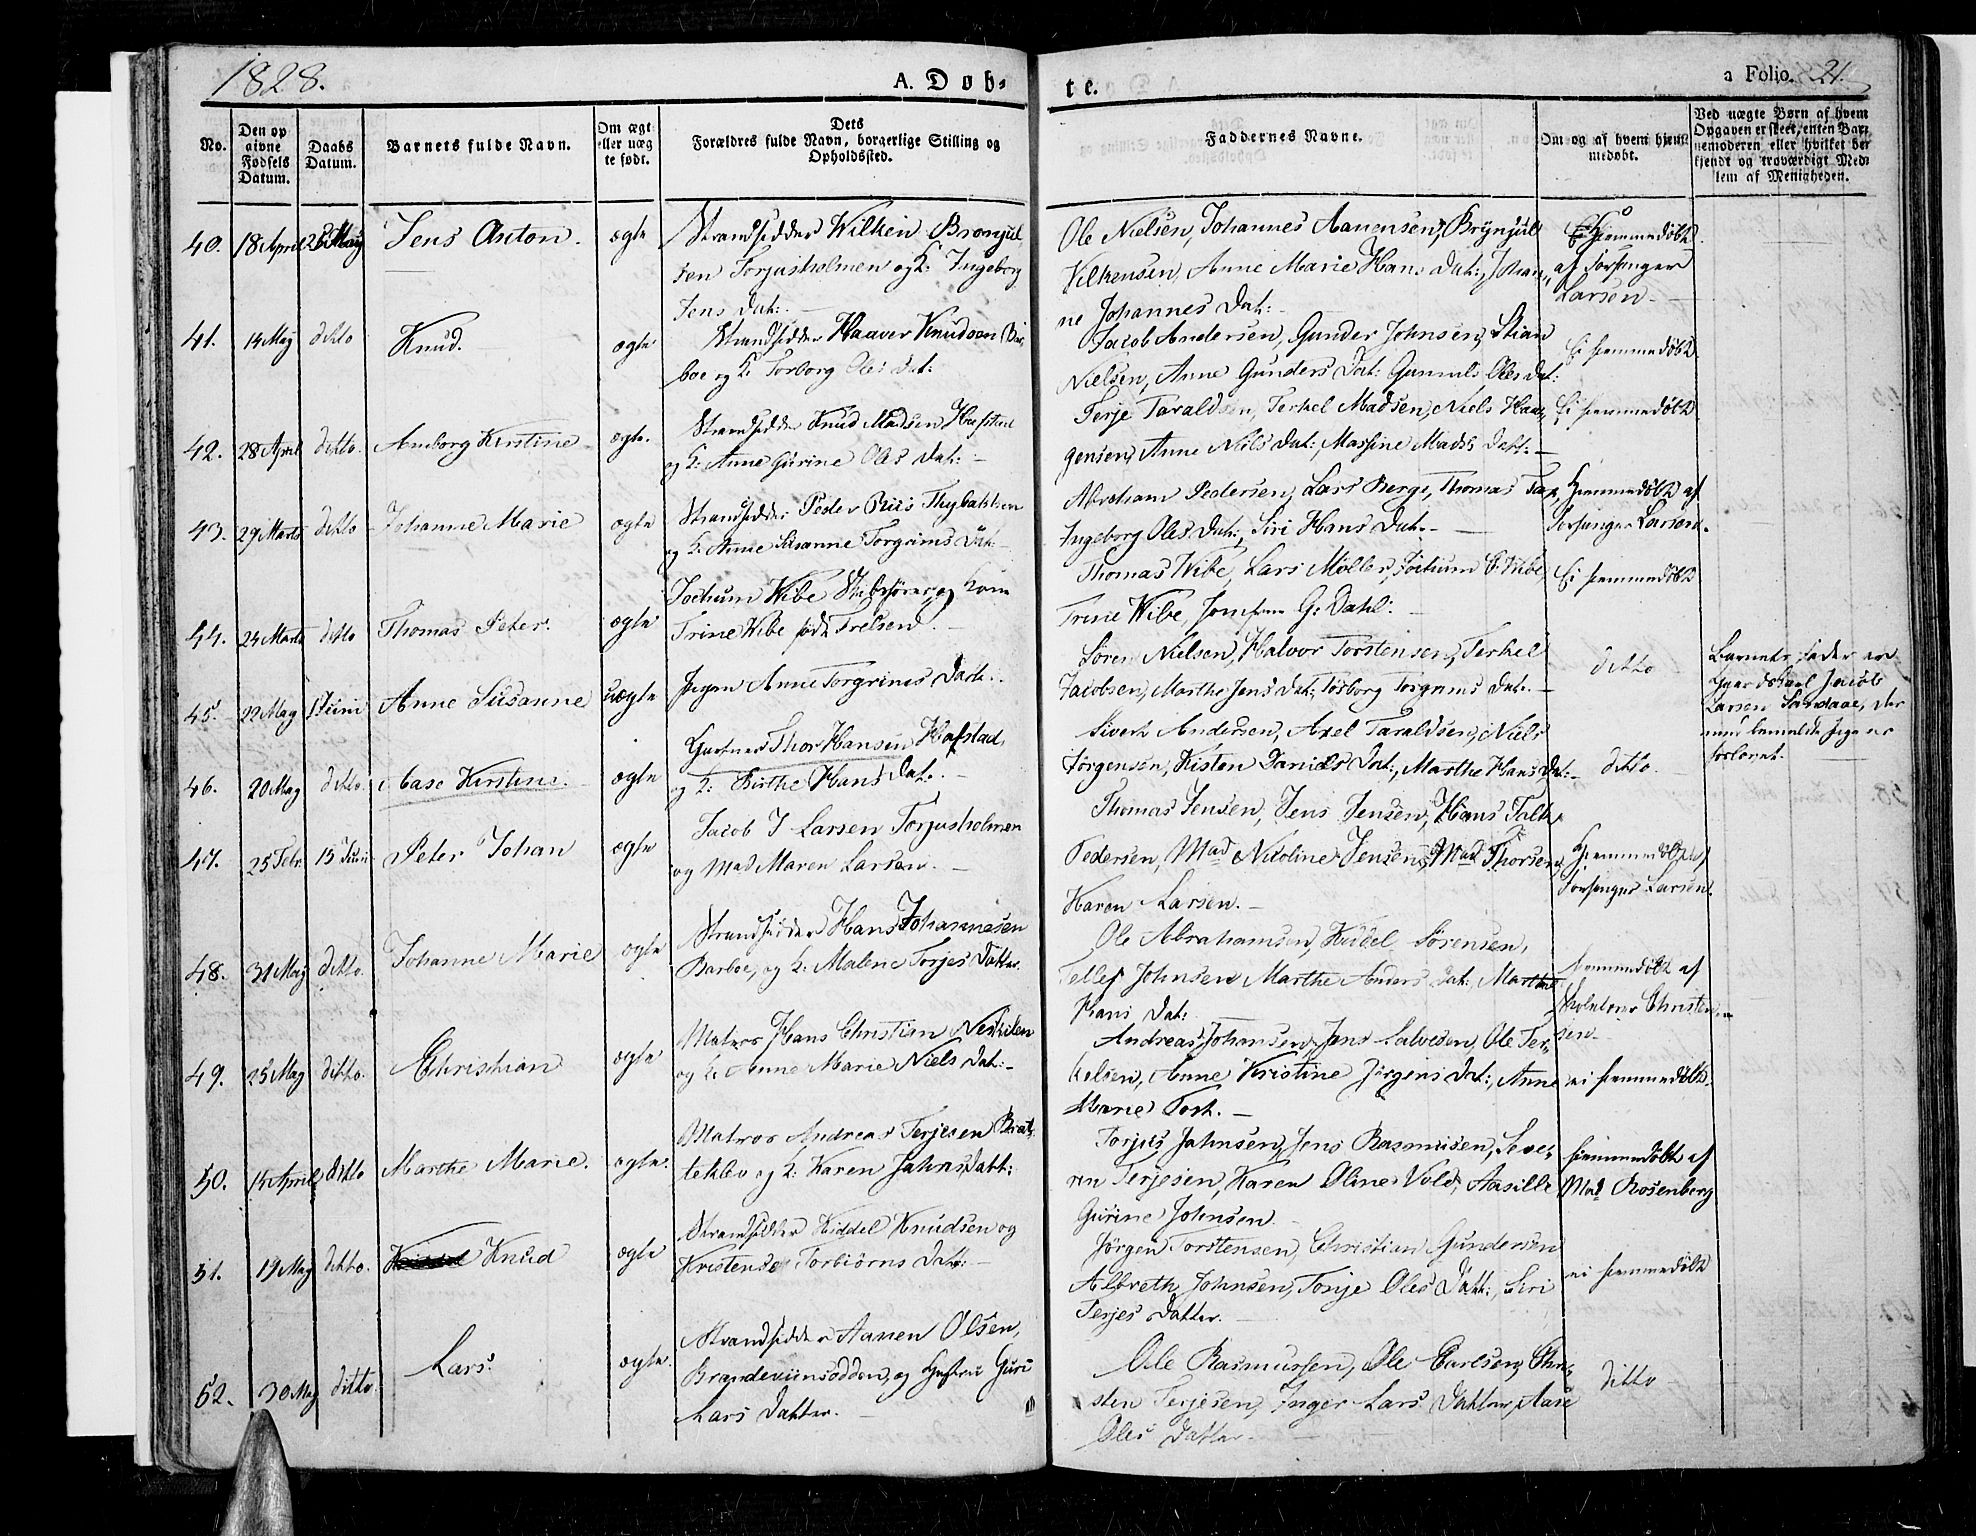 1828.
A. Döb-
te.
a Folio. 21.
No.
Den op
givne
Fødsels
Datum.
Daabs
Datum.
Barnets fulde Navn.
Om ægt
eller uæg
te født.
Dets
Forældres fulde Navn, borgerlige Stilling og
Opholdssted.
Faddernes Navne.
Om og af hvem hjem
medøbt.
Ved uægte Børn af hvem
Opgaven er skeet, enten Bar
nemoderen eller hvilket be
kjendt og troværdigt Med
lem af Menigheden.
40. 18 April 26 May Jens Anton. ægte
Strandsidder Wilken Bronjul
sen Torjusholmen og K: Ingeborg
Jens Dat:
Ole Nielsen, Johannes Aanensen, Brynjul
Vilkensen, Anne Marie Hans Dat:, Johan-
ne Johannes Dat:
Hjemmedøbt
af Forsanger
Larsen
41. 14 May ditto Knud. ægte
Strandsidder Haaver Knudsen Bar
boe og K: Torborg Ols Dat:
Jacob Andersen, Gunder Johnsen, Stian
Nielsen, Anne Gunders Dat: Gunnild Oles Dat:
Ei hjemmedøbt
42. 28 April ditto. Amborg Kirstine ægte.
Strandsidder Knud Madsen Hafstad
og K: Anne Gurine Oles Dat:
Terje Taraldsen, Terkel Madsen, Niels Haa-
gensen, Anne Niels Dat:, Massine Mads Datt:
Ei hjemmedøbt
43. 29 Marts ditto Johanne Marie ægte
Strandsidder Peder Riis Thybaktsen
og K: Anne Susanne Torgrims Dat
Abraham Pedersen, Lars Berge, Thomas
Ingeborg Oles Dat:, Siri Hans Dat:
Hjemmedøbt af
Forsanger Larsen.
44. 24 Marts ditto Thomas Peter. ægte
Jochum Wibe Skibsfører og Kone
Trine Wibe født Trelsen
Thomas Wibe, Lars Møller, Jochum G. Wibe,
Trine Wibe, Jomfrue G. Dahl.
Ei hjemmedøbt
45. 22 May 1 Juni Anne Susanne uægte
Pigen Anne Torgrims Datt.
Søren Nielsen, Halvor Torstensen, Terkel
Jacobsen, Marthe Jens Dat:, Torborg Torgrims Dat.
ditto
Barnets Fader er
Jacob
Larsen Sandaae, der
med bemeldte Pige er
forlovet.
46. 20 May ditto Aase Kirstine. ægte
Gartner Thor Hansen Hafstad
og K: Birthe Hans Dat.
Sivert Andersen, Axel Taraldsen, Niels
Jørgensen, Kisten Daniels Dat:, Marthe Hans Dat:
ditto.
47. 25 Febr. 15 Juni Peter Johan ægte
Jacob J Larsen Torjusholmen
og Mad Maren Larsen.
Thomas Jensen, Jens Jensen, Hans Falk
Pedersen, Mad Nicoline Jensen, Mad Thorsen,
Karen Larsen.
Hjemmedøbt af
Forsanger Larsen.
48. 31 May ditto. Johanne Marie ægte
Strandsidder Hans Johannesen
Barboe, og K: Malene Torjes Datter
Ole Abrahamsen, Kiddel Sørensen,
Tellef Johnsen Marthe Anders Dat:, Marthe
Hans Dat:
hjemmedøbt af
Skolelærer Christen
sen
49. 25 May ditto. Christian ægte
Matros Hans Christian Neskilen
og K: Anne Marie Niels Dat:
Andreas Johansen, Jens Salvesen, Ole Ter-
kelsen, Anne Kristine Jørgens Dat:, Anne
Marie Tost.
ei hjemmedøbt.
50. 14 April ditto Marthe Marie. ægte.
Matros Andreas Terjesen Brat-
teklev og K: Karen Jahns Datt:
Torjus Jahnsen, Jens Rasmusen, Seve-
rin Terjesen, Karen Oline Vold, Aasille
Gurine Johnsen
hjemmedøbt af
Mad Rosenberg
51. 19 May ditto. Knud ægte
Strandsidder Kiddel Knudsen og
Kristense Torbiørns Datt:
Jørgen Torstensen, Christian Gundersen
Albreth Johnsen, Tonje Oles Datt:, Siri
Terjes Datter.
ei hjemmedøbt
52. 30 May ditto Lars. ægte.
Strandsidder Aanen Olsen,
Brandeviinsodden, og Hustru Guri
Lars Datter.
Ole Rasmussen, Ole Carlsen, Chri-
sten Terjesen, Inger Lars Datter, Aase
Oles Datter
ditto